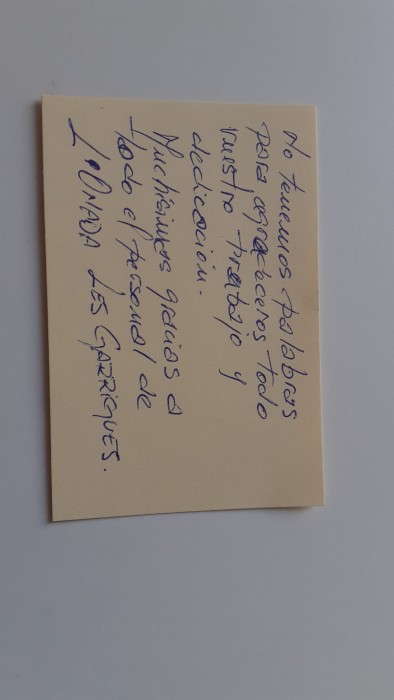 No tenemos palabras
para agradeceros todo
vuestro trabajo y
dedicación.
Muchísimas gracias a
todo el personal de
L'ONADA LES GARRIGUES.